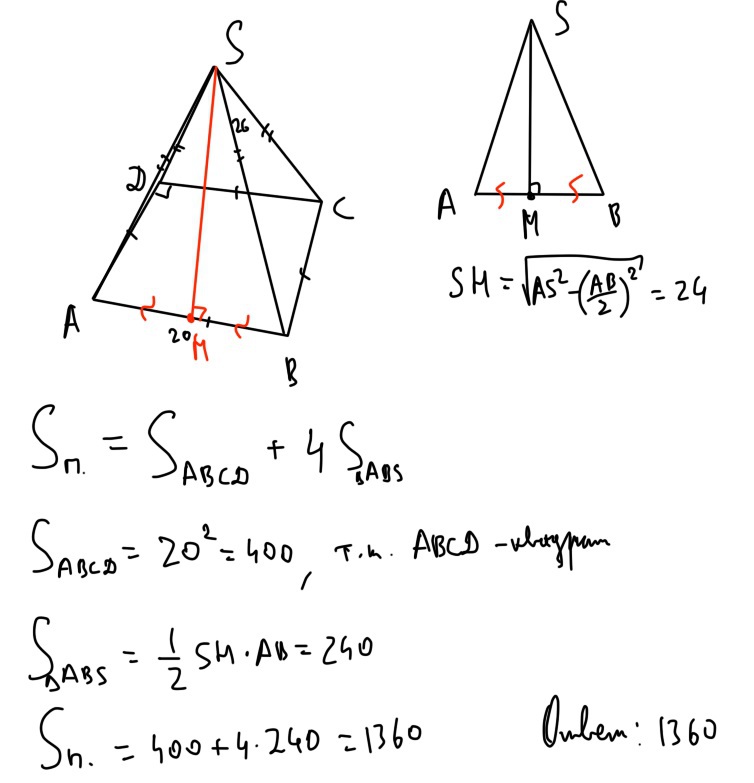 S
26
D
C
A
20
M
B
S
A
M
B
SM = √(AS² - (AB/2)²) = 24
Sп. = S_ABCD + 4 S_ΔABS
S_ABCD = 20² = 400, т.к. ABCD - квадрат
S_ΔABS = 1/2 SM · AB = 240
Sп. = 400 + 4 · 240 = 1360
Ответ: 1360